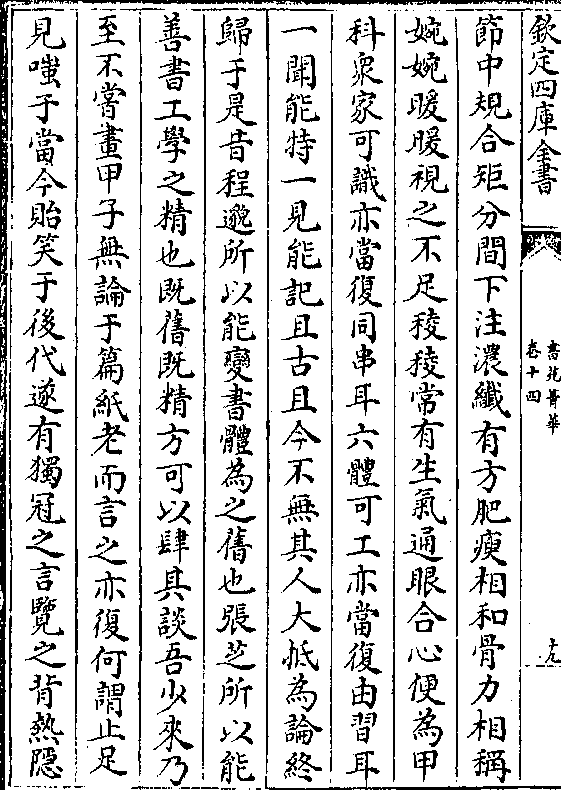 欽定四庫全書
書苑菁華
卷十四
節中規合矩分間下注濃纖有方肥瘦相和骨力相稱
婉婉曖曖視之不足稜稜常有生氣通眼合心便為甲
科衆家可識亦當復同串耳六體可工亦當復由習耳
一聞能持一見能記且古且今不無其人大抵為論終
歸于是昔程邈所以能變書體為之舊也張芝所以能
善書工學之精也既舊既精方可以肆其談吾少來乃
至不嘗畫甲子無論于篇紙老而言之亦復何謂止足
見嗤于當今貽笑于後代遂有獨冠之言覽之背熱隠